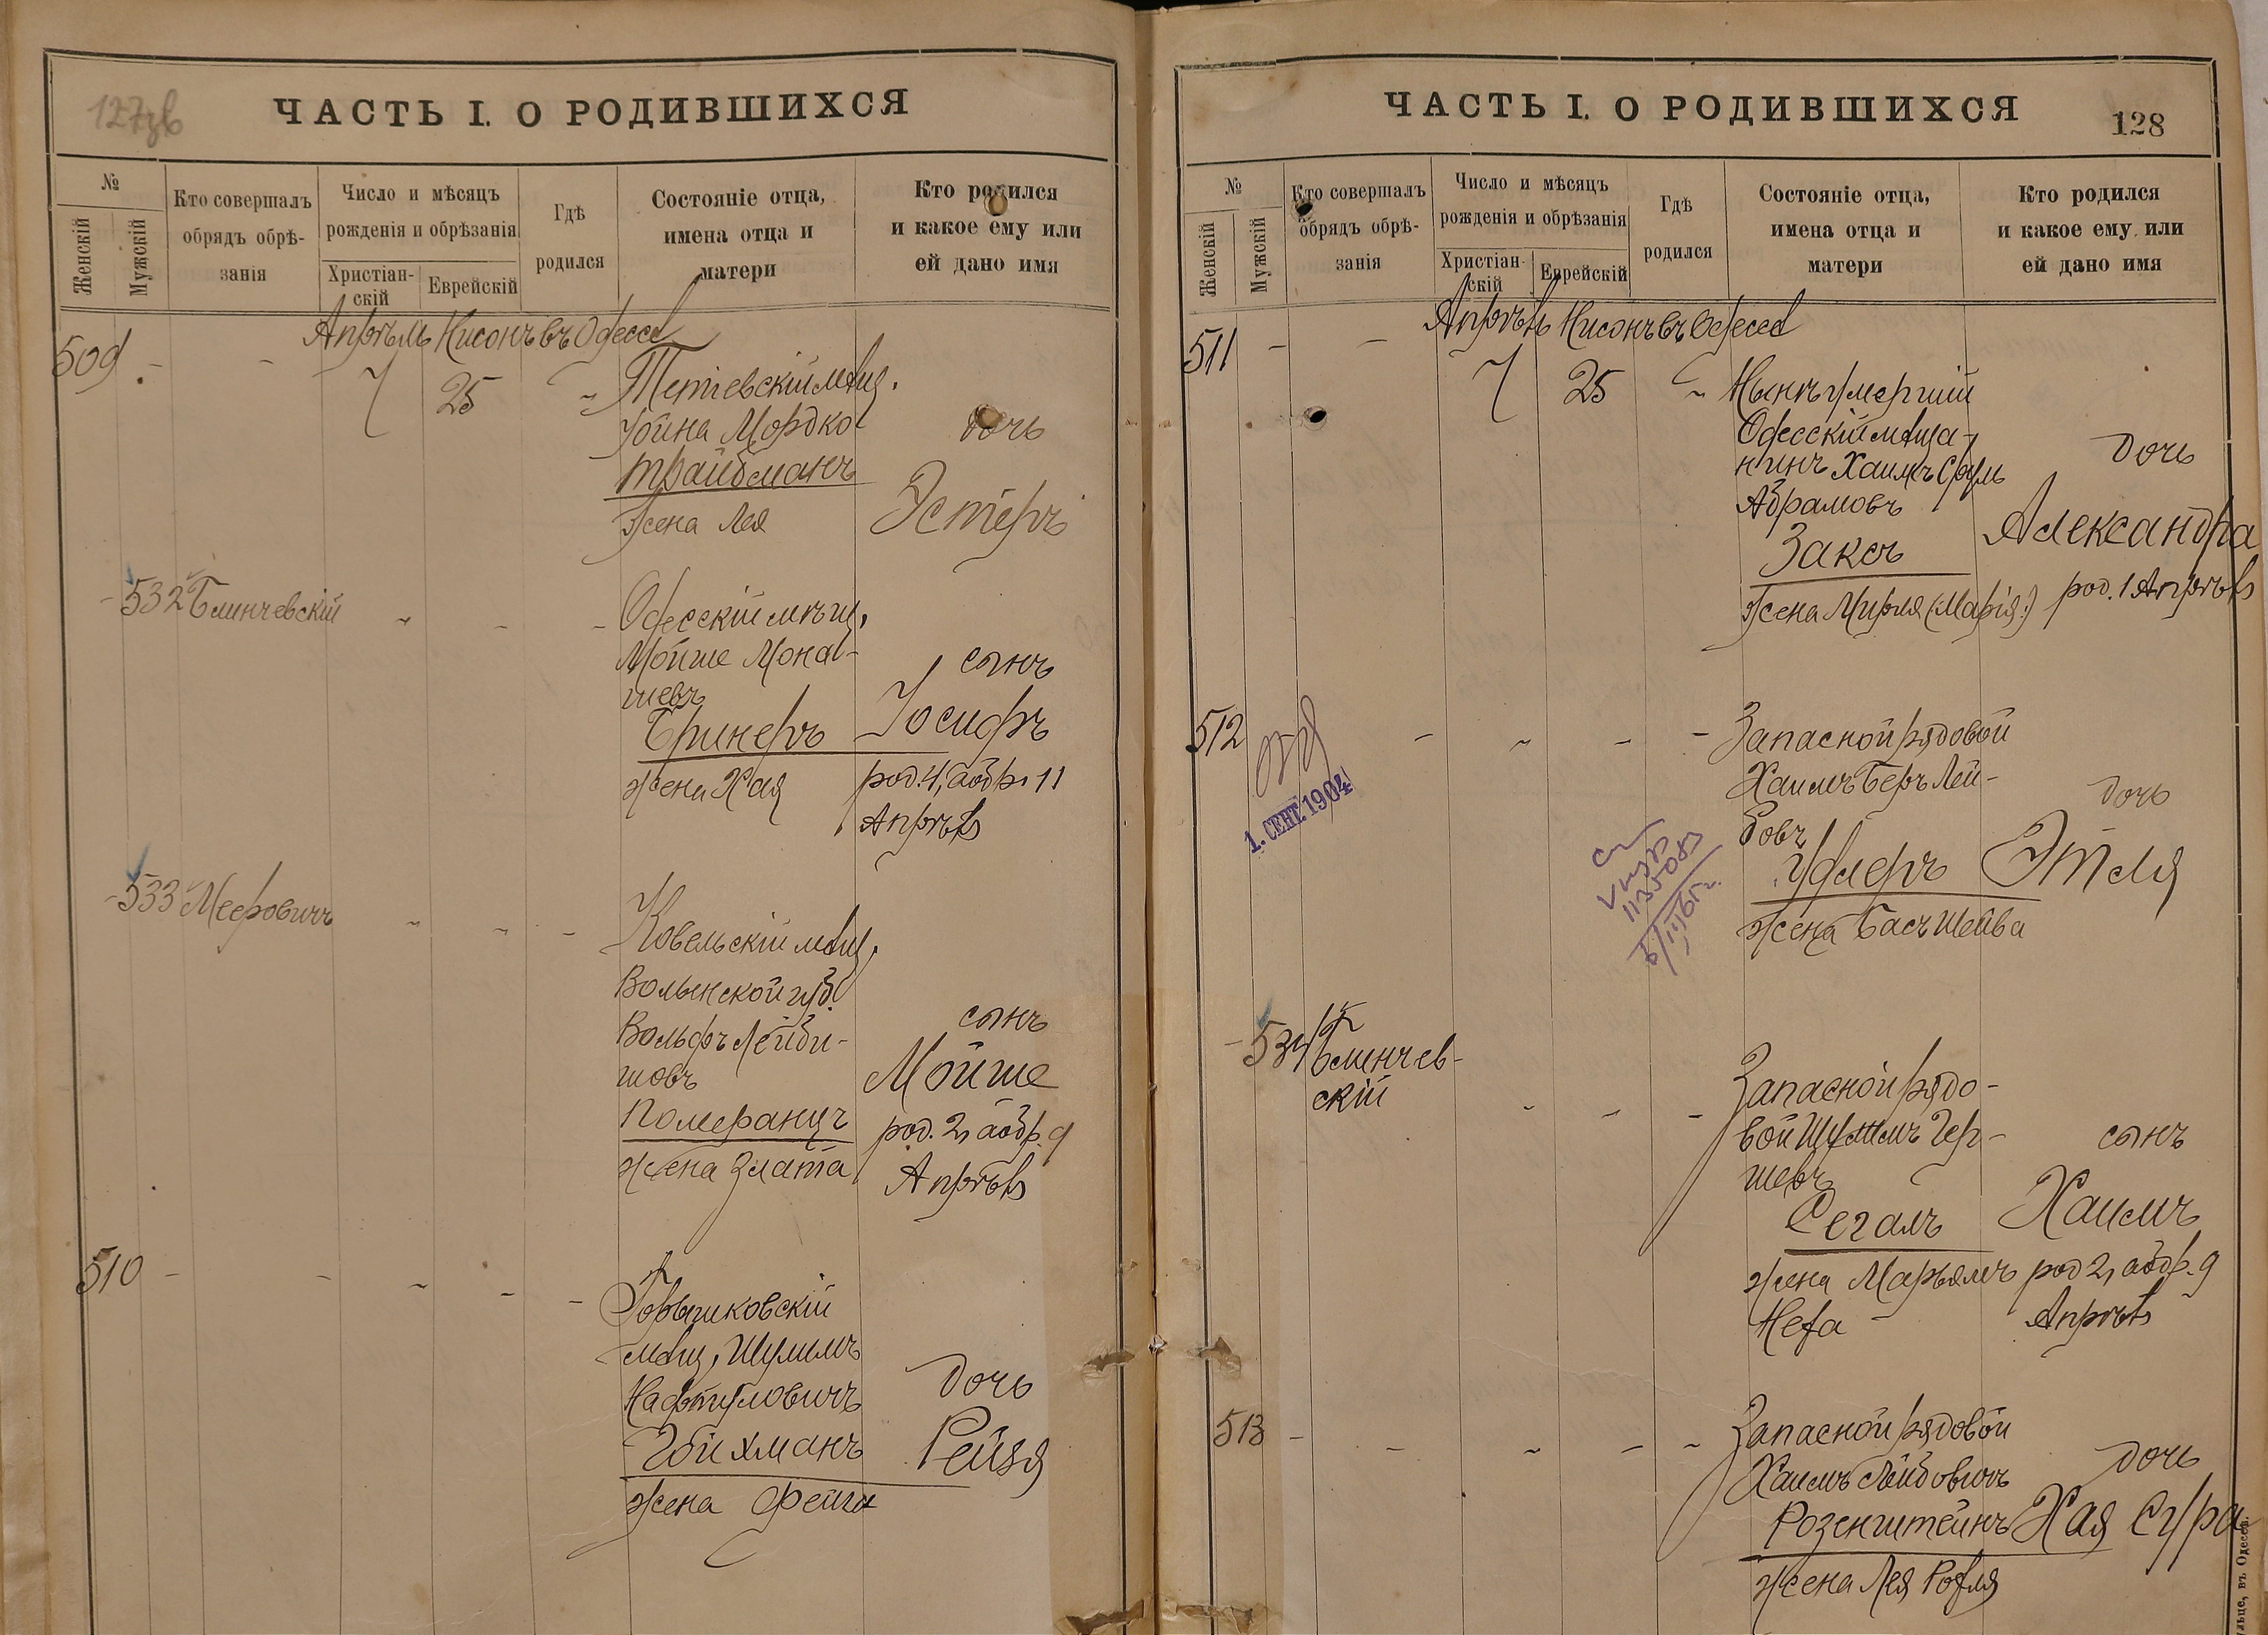 127зв
ЧАСТЬ I. О РОДИВШИХСЯ
№
Женскій
Мужскій
Кто совершалъ
обрядъ обрѣ-
занія
Число и мѣсяцъ
рожденія и обрѣзанія
Христіан-
скій
Еврейскій
Гдѣ
родился
Состояніе отца,
имена отца и
матери
Кто родился
и какое ему или
ей дано имя
Апрѣль Нисонъ въ Одессѣ
509 - - 7 25 - Тетіевскій мѣщ.
Іойна Мордко
Трайбманъ
жена Лея
дочь
Эстеръ
532 Блинчевскій
Одесскій мѣщ.
Мойше Мона-
шевъ
Бринеръ
жена Хая
сынъ
Іосифъ
род. 4, а обр. 11
Апрѣля
533 Мееровичъ
Ковельскій мѣщ.
Волынской губ.
Вольфъ Лейби-
шовъ
Померанцъ
жена Злата
сынъ
Мойше
род. 2, а обр. 9
Апрѣля
510
мѣщ. Шулимъ
Нафтуловичъ
Гойхманъ
жена Фейга
дочь
Рейзя
ЧАСТЬ I. О РОДИВШИХСЯ
128
№
Женскій
Мужскій
Кто совершалъ
обрядъ обрѣ-
занія
Число и мѣсяцъ
рожденія и обрѣзанія
Христіан-
скій
Еврейскій
Гдѣ
родился
Состояніе отца,
имена отца и
матери
Кто родился
и какое ему или
ей дано имя
Апрѣль Нисонъ въ Одессѣ
511 - - 7 25 - Нынѣ умершій
Одесскій мѣща-
нинъ Хаимъ Сруль
Абрамовъ
Заксъ
жена Мирля (Марія)
дочь
Александра
род. 1 Апрѣля
512
1. СЕНТ. 1904
Запасной рядовой
Хаимъ Беръ Лей-
бовъ
Удлеръ
жена Бася Шейва
дочь
Этля
534 Блинчев-
скій
Запасной рядо-
вой Шулимъ Гер-
шевъ
Сегалъ
жена Марьямъ
Неха
сынъ
Хаимъ
род. 2, а обр. 9
Апрѣля
513
Запасной рядовой
Хаимъ Лейбовичъ
Розенштейнъ
жена Лея Рохля
дочь
Хая Сура
въ Одессѣ.